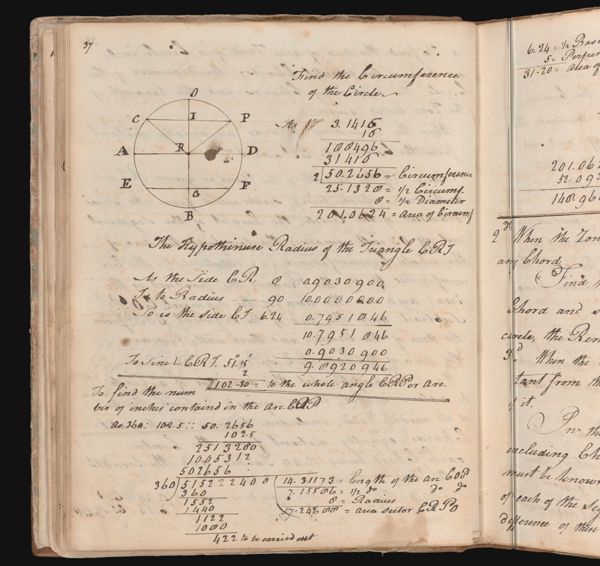 37
Find the Circumference
of the Circle
O
C I P
A R D
E G F
B
As 1
3.1416
16
188496
31416
2 50.2656 = Circumference
25.1328 = 1/2 Circumf.
8 = 1/2 Diameter
201.0624 = area of Circumf
The Hypothinuse Radius of the Triangle CRI
As the Side CR 8 0.9030900
Is to Radius 90 10.0000000
So is the Side CI 6.24 0.7951846
10.7951846
0.9030900
To Sine CRI. 51.15 9.8920946
2
102.30 = to the whole angle CRP or Arc
To find the num
ber of inches containd in the arc COP
as 360: 102.5 :: 50.2656
1025
2513280
1005312
502656
360)515222400(14.31173 = length of the arc COP
360
7.15586 = 1/2 Do Do Do
1552
8 = Radius
1440
57.24688 = area sector CRPO
1122
1080
422 to be carried out
6.24 = 1/2 Bas
5 = Perpen
31.20 = area of
201.06
52.09
148.96
2d When the Zon
any Chord
Find
Chord and s
circle, the Rem
3d When the
tant from th
it.
In th
including Ch
must be known
of each of the Seg
difference of them